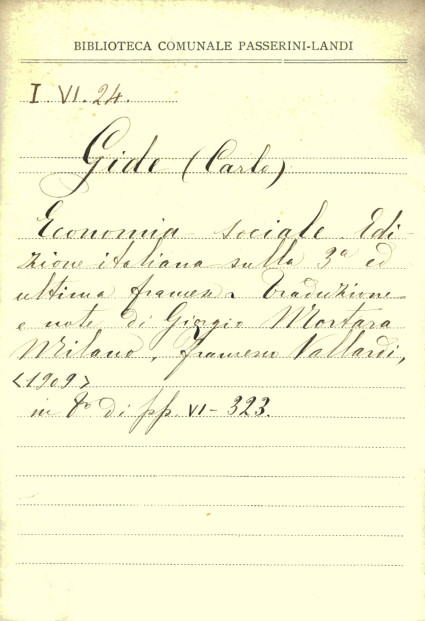 BIBLIOTECA COMUNALE PASSERINI-LANDI
I. VI. 24.
Gide (Carlo)
Economia sociale. Edi-
zione italiana sulla 3ª ed
ultima francese. Traduzione
e note di Giorgio Mortara
Milano, Francesco Vallardi,
<1909>
in 8º di pp. VI-323.